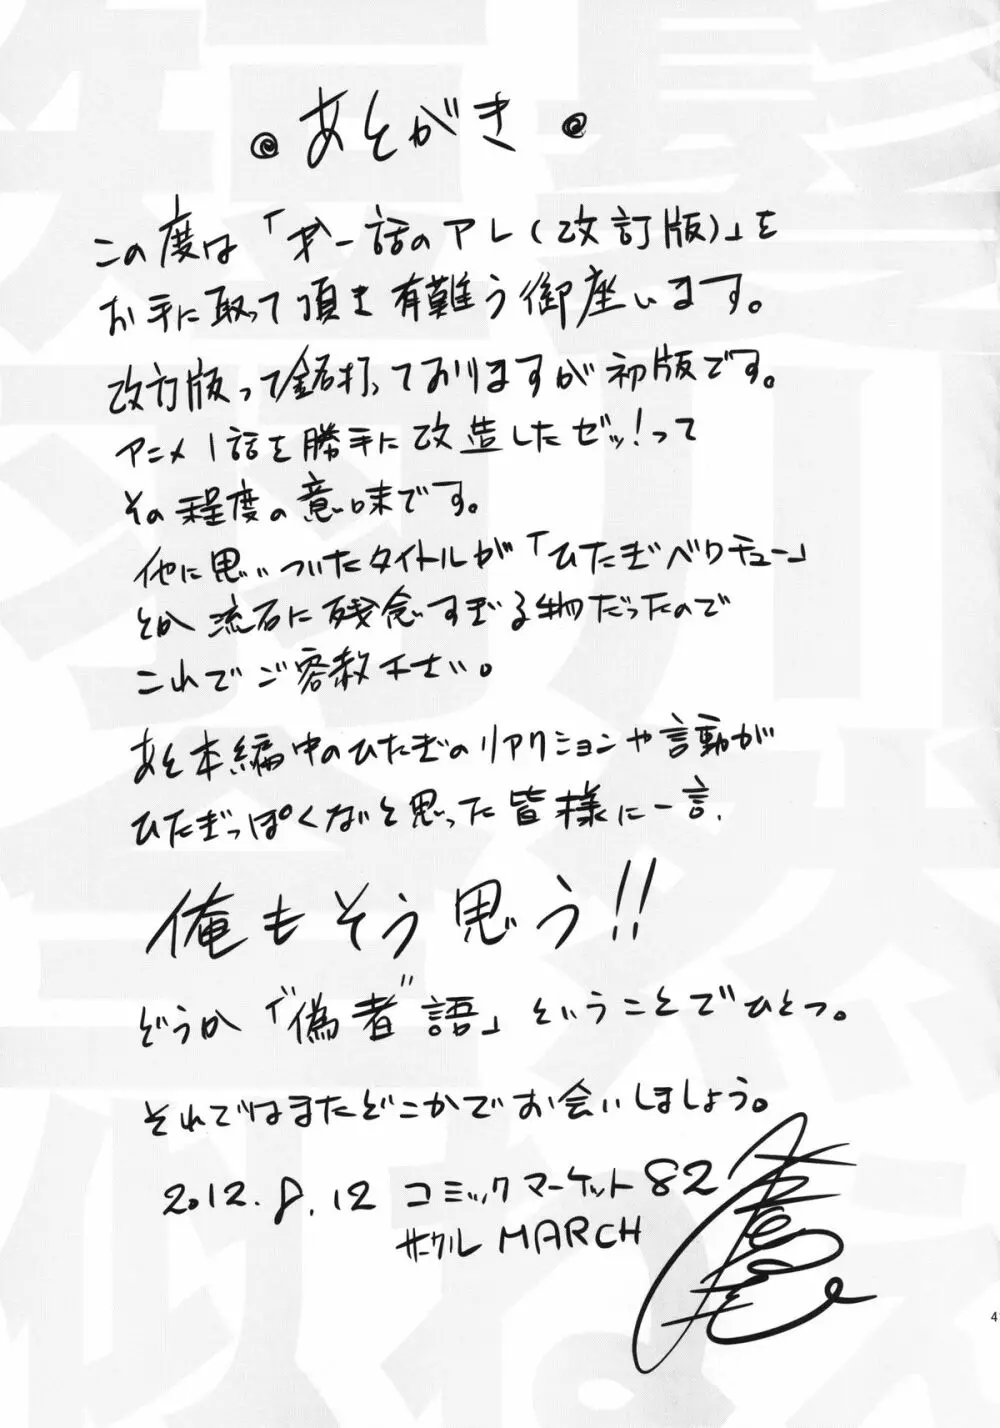 あとがき
この度は「才一話のアレ(改訂版)」を
お手に取って頂き有難う御座います。
改訂版って銘打っておりますが初版です。
アニメ1話を勝手に改造したゼッ!って
その程度の意味です。
他に思いついたタイトルが「ひたぎベクチュー」
とか流石に残念すぎる物だったので
これでご容赦下さい。
あと本編中のひたぎのリアクションや言動が
ひたぎっぽくないと思った皆様に一言.
俺もそう思う!!
どうか「"偽者"語」ということでひとつ。
それではまたどこかでお会いしましょう。
2012.8.12 コミックマーケット82
サークル MARCH